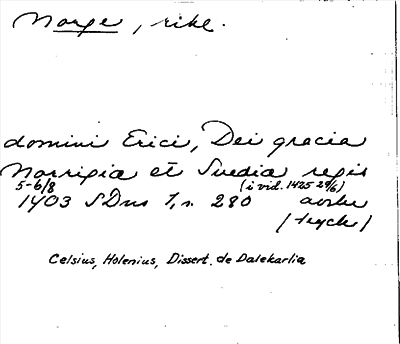 Norge, rike.
domini Erici, Dei gracia
Norrigia et Suedia regis
5-6/8 (i vid. 1425 29/6)
1403 SDns 1, n. 280 avskr
(tryck)
Celsius, Holenius, Dissert. de Dalekarlia